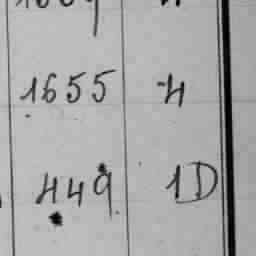 1655 4
449 1D